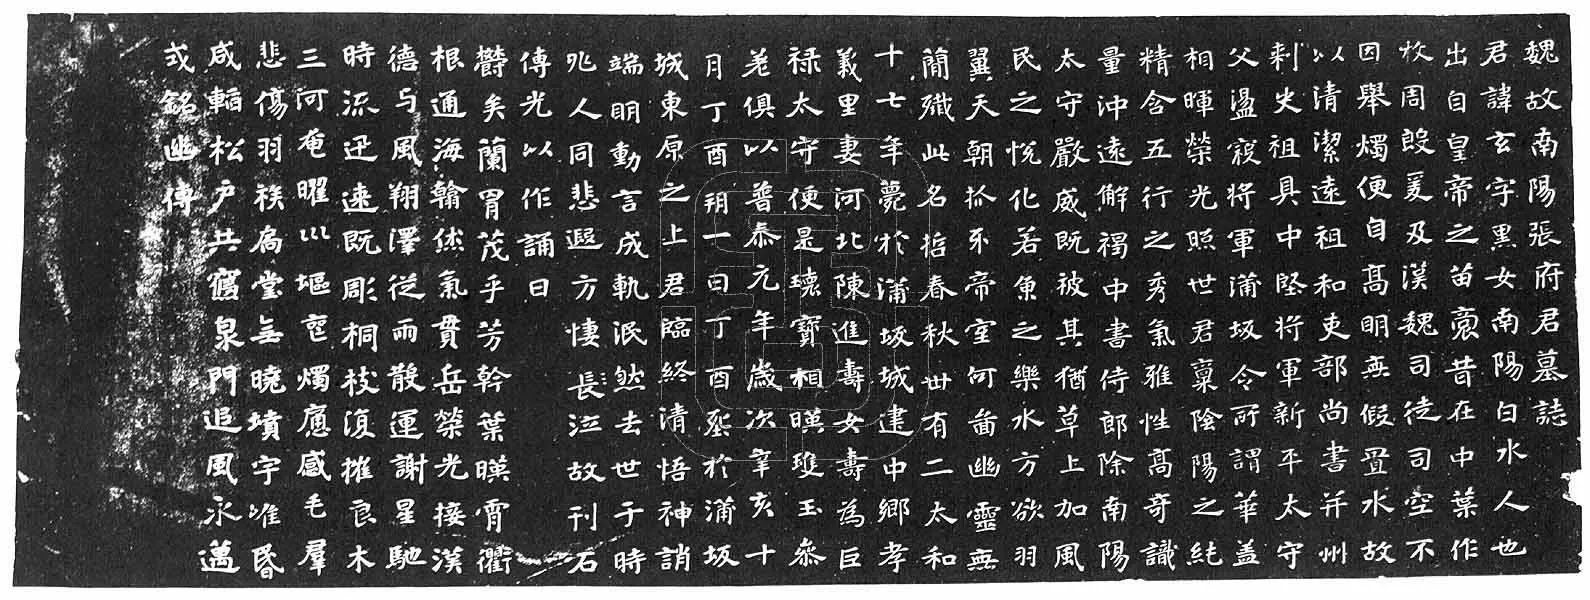 魏故南陽張府君墓誌
君諱玄字黑女南陽白水人也
出自皇帝之苗裔昔在中葉作
牧周殷爰及漢魏司徒司空不
因舉燭便自高明無假置水故
以清潔遠祖和吏部尚書并州
刺史祖具中堅將軍新平太守
父盪寇將軍蒲坂令所謂華蓋
相暉榮光照世君稟陰陽之純
精含五行之秀氣雅性高奇識
量沖遠解褐中書侍郎除南陽
太守嚴威既被其猶草上加風
民之悅化若魚之樂水方欲羽
翼天朝抓牙帝室何啚幽靈無
簡殲此名哲春秋卅有二太和
十七年薨於蒲坂城建中鄉孝
義里妻河北陳進壽女壽為巨
祿太守便是瓌寶相暎瓊玉參
差俱以普泰元年歲次辛亥十
月丁酉朔一日丁酉葬於蒲坂
城東原之上君臨終清悟神誚
端明動言成軌泯然去世于時
兆人同悲遐方悽長泣故刊石
傳光以作誦曰
欝矣蘭冑茂乎芳幹葉暎霄衢
根通海翰休氣貫岳榮光接漢
德与風翔澤從雨散運謝星馳
時流迅速既彫桐枝復摧良木
三河奄曜川塸寁燭痛感毛羣
悲傷羽族扃堂無曉墳宇唯昏
咸韜松戶共寢泉門追風永邁
式銘幽傳